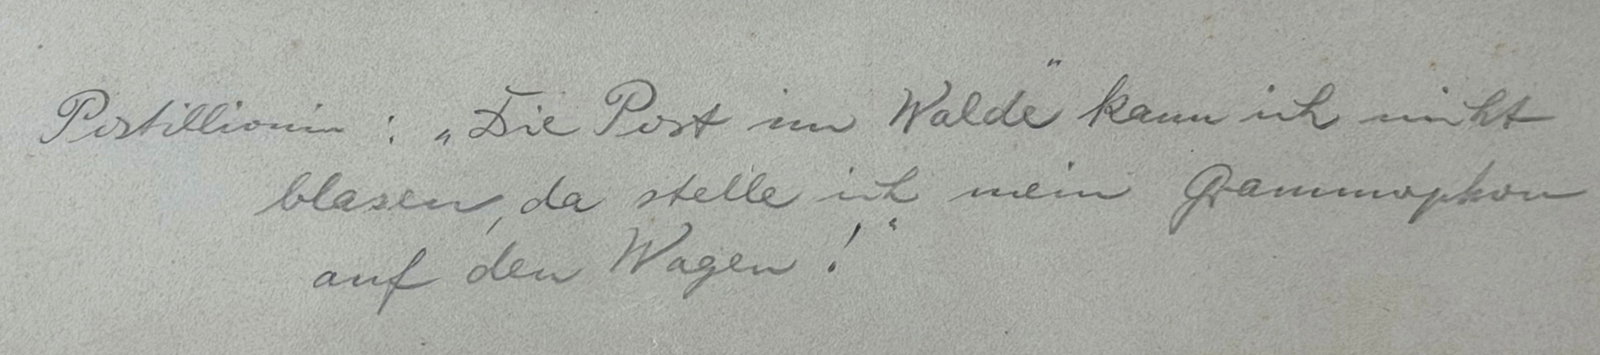 Postillionin : „Die Post im Walde" kann ich nicht
blasen, da stelle ich mein Grammophon
auf den Wagen !"